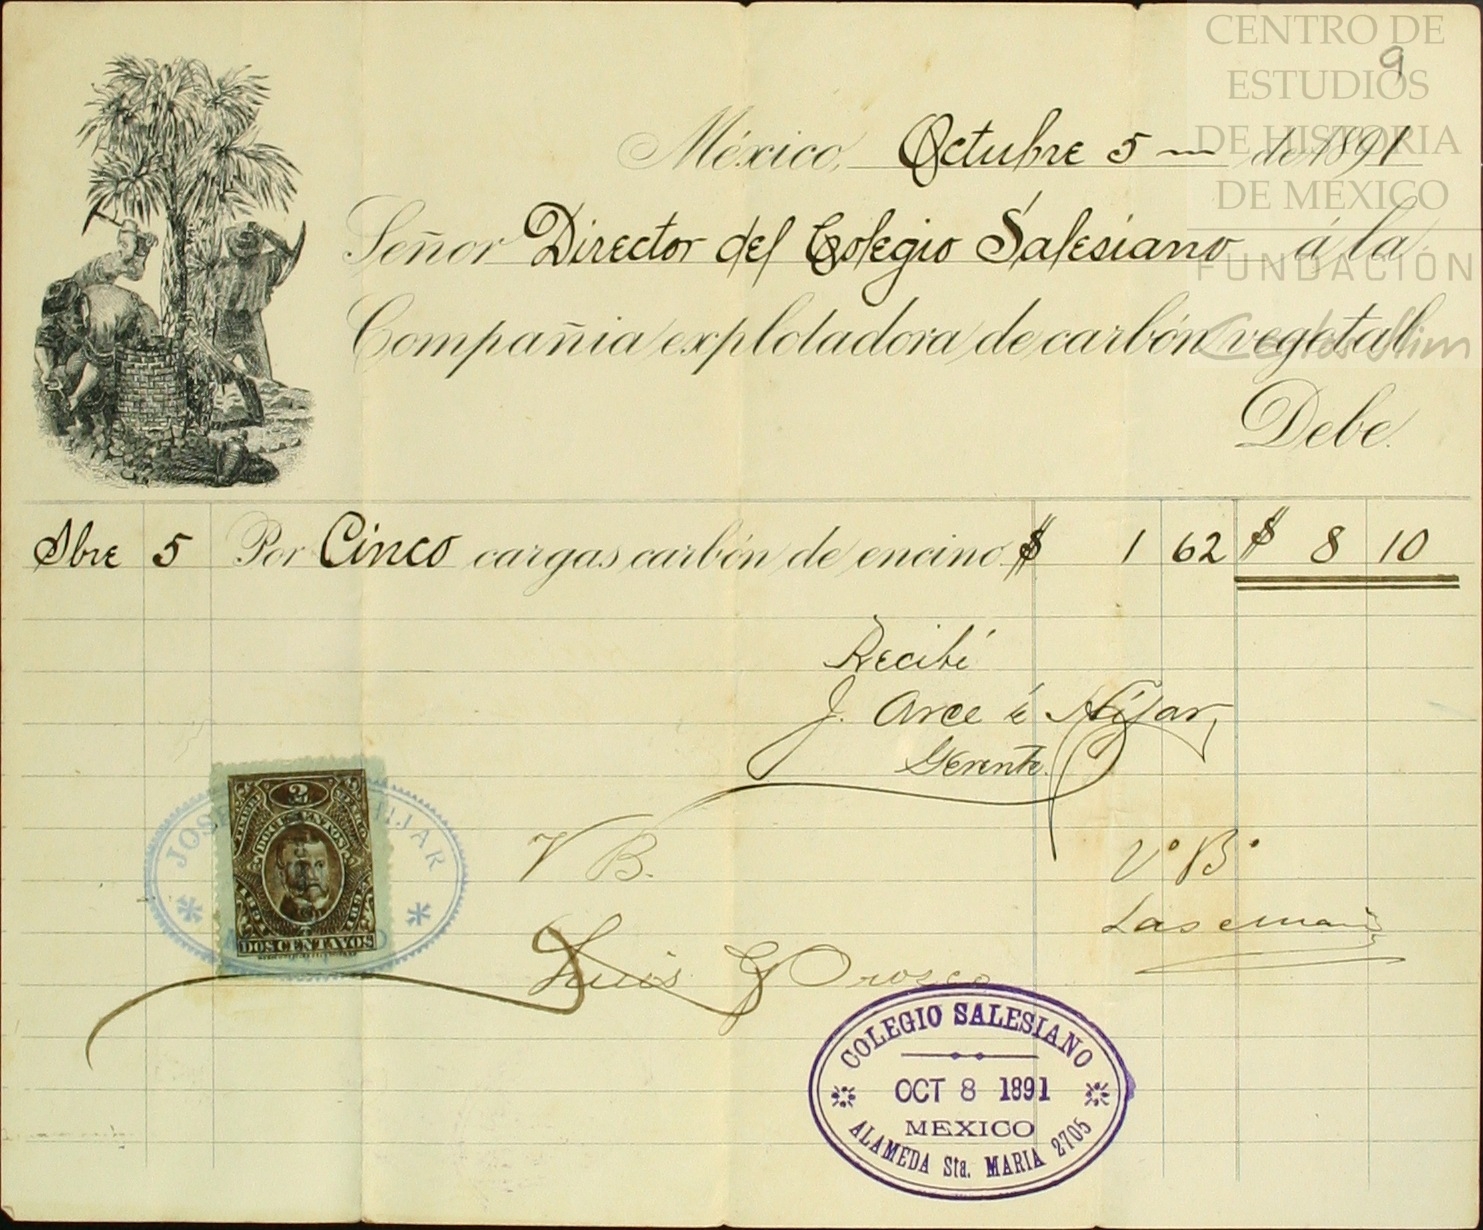 CENTRO DE
ESTUDIOS
DE HISTORIA
DE MÉXICO
FUNDACIÓN
Carlos Slim
9
México, Octubre 5 de 1891
Señor Director del Colegio Salesiano á la
Compañia explotadora de carbón vegetal
Debe.
8bre 5 Por Cinco cargas carbón de encino $ 1 62 $ 8 10
Recibí
J. Arce é Híjar,
Gerente.
JOSE HIJAR
2
DOS CENTAVOS
V B.
Luis G Orosco
Vº Bº
COLEGIO SALESIANO
OCT 8 1891
MEXICO
ALAMEDA Sta. MARIA 2705